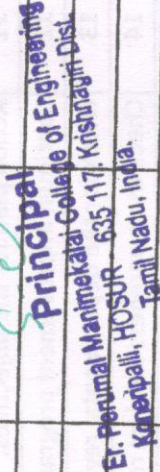 Principal
Er. Perumal Manimekalai College of Engineering
Koneripalli, HOSUR - 635 117. Krishnagiri Dist.
Tamil Nadu, India.